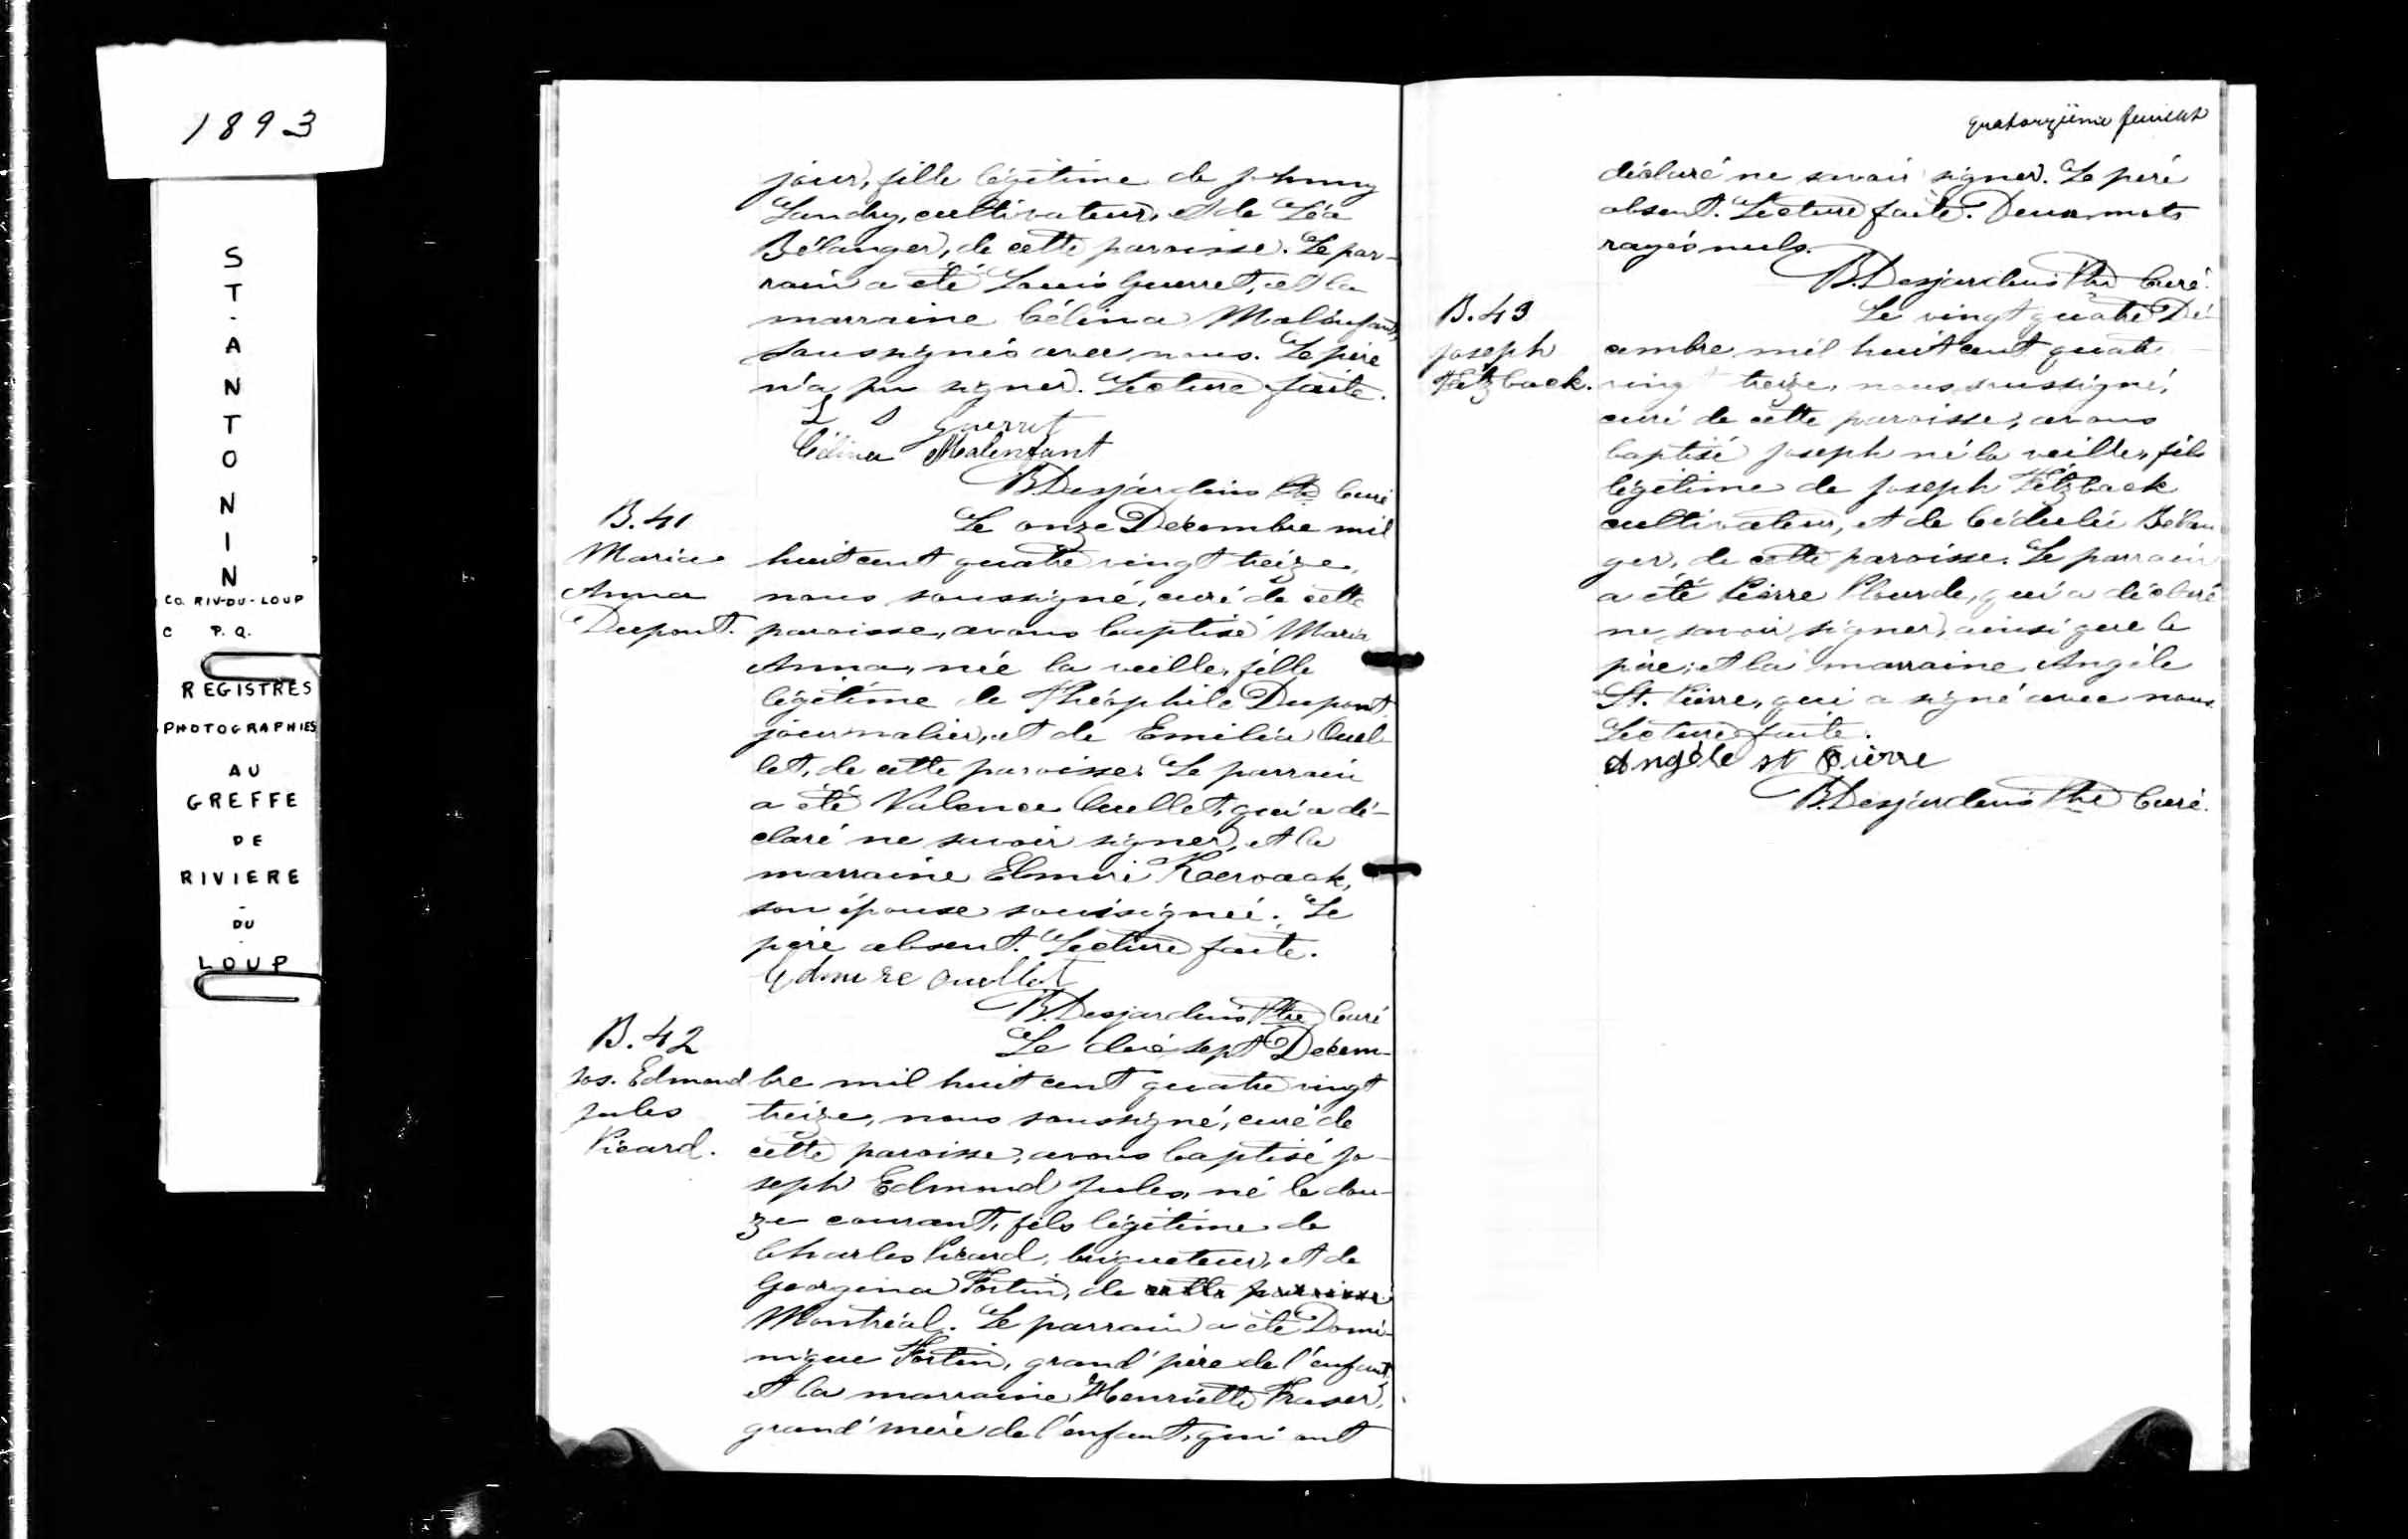 1893
ST. ANTONIN
CO. RIV-DU-LOUP
C P.Q.
REGISTRES
PHOTOGRAPHIES
AU
GREFFE
DE
RIVIERE
-
DU
-
LOUP
jour, fille légitime de Johnny
Landry, cultivateur, et de Léa
Bélanger, de cette paroisse. Le par-
rain a été Louis Guerret, et la
marraine Célina Malenfant,
soussignés avec nous. Le père
n'a pu signer. Lecture faite.
L S Guerret
Célina Malenfant
B. Desjardins Ptre Curé
B. 41
Maria
Anna
Dupont.
Le onze Décembre mil
huit cent quatre vingt treize,
nous soussigné, curé de cette
paroisse, avons baptisé Maria
Anna, née la veille, fille
légitime de Théophile Dupont
journalier, et de Emilia Ouel-
let, de cette paroisse. Le parrain
a été Valence Ouellet, qui a dé-
claré ne savoir signer, et la
marraine Elmire Kéroack,
son épouse soussignée. Le
père absent. Lecture faite.
Edmire Ouellet
B. Desjardins Ptre Curé
B. 42
Jos. Edmond
Jules
Picard.
Le dix sept Décem-
bre mil huit cent quatre vingt
treize, nous soussigné, curé de
cette paroisse, avons baptisé Jo-
seph Edmond Jules, né le dou-
ze courant, fils légitime de
Charles Picard, briqueteur, et de
Georgina Fortin, de cette paroisse
Montréal. Le parrain a été Domi-
nique Fortin, grand'père de l'enfant,
et la marraine Henriette Fraser,
grand'mère de l'enfant, qui ont
quatorzième feuillet
déclaré ne savoir signer. Le père
absent. Lecture faite. Deux mots
rayés nuls.
B. Desjardins Ptre Curé.
B. 43
Joseph
Fitzback.
Le vingt quatre Dé-
cembre mil huit cent quatre
vingt treize, nous soussigné,
curé de cette paroisse, avons
baptisé Joseph né la veille, fils
légitime de Joseph Fitzback
cultivateur, et de Cédulie Bélan
ger, de cette paroisse. Le parrain
a été Pierre Plourde, qui a déclaré
ne savoir signer, ainsi que le
père; et la marraine Angèle
St. Pierre, qui a signé avec nous.
Lecture faite.
Angèle st Pierre
B. Desjardins Ptre Curé.